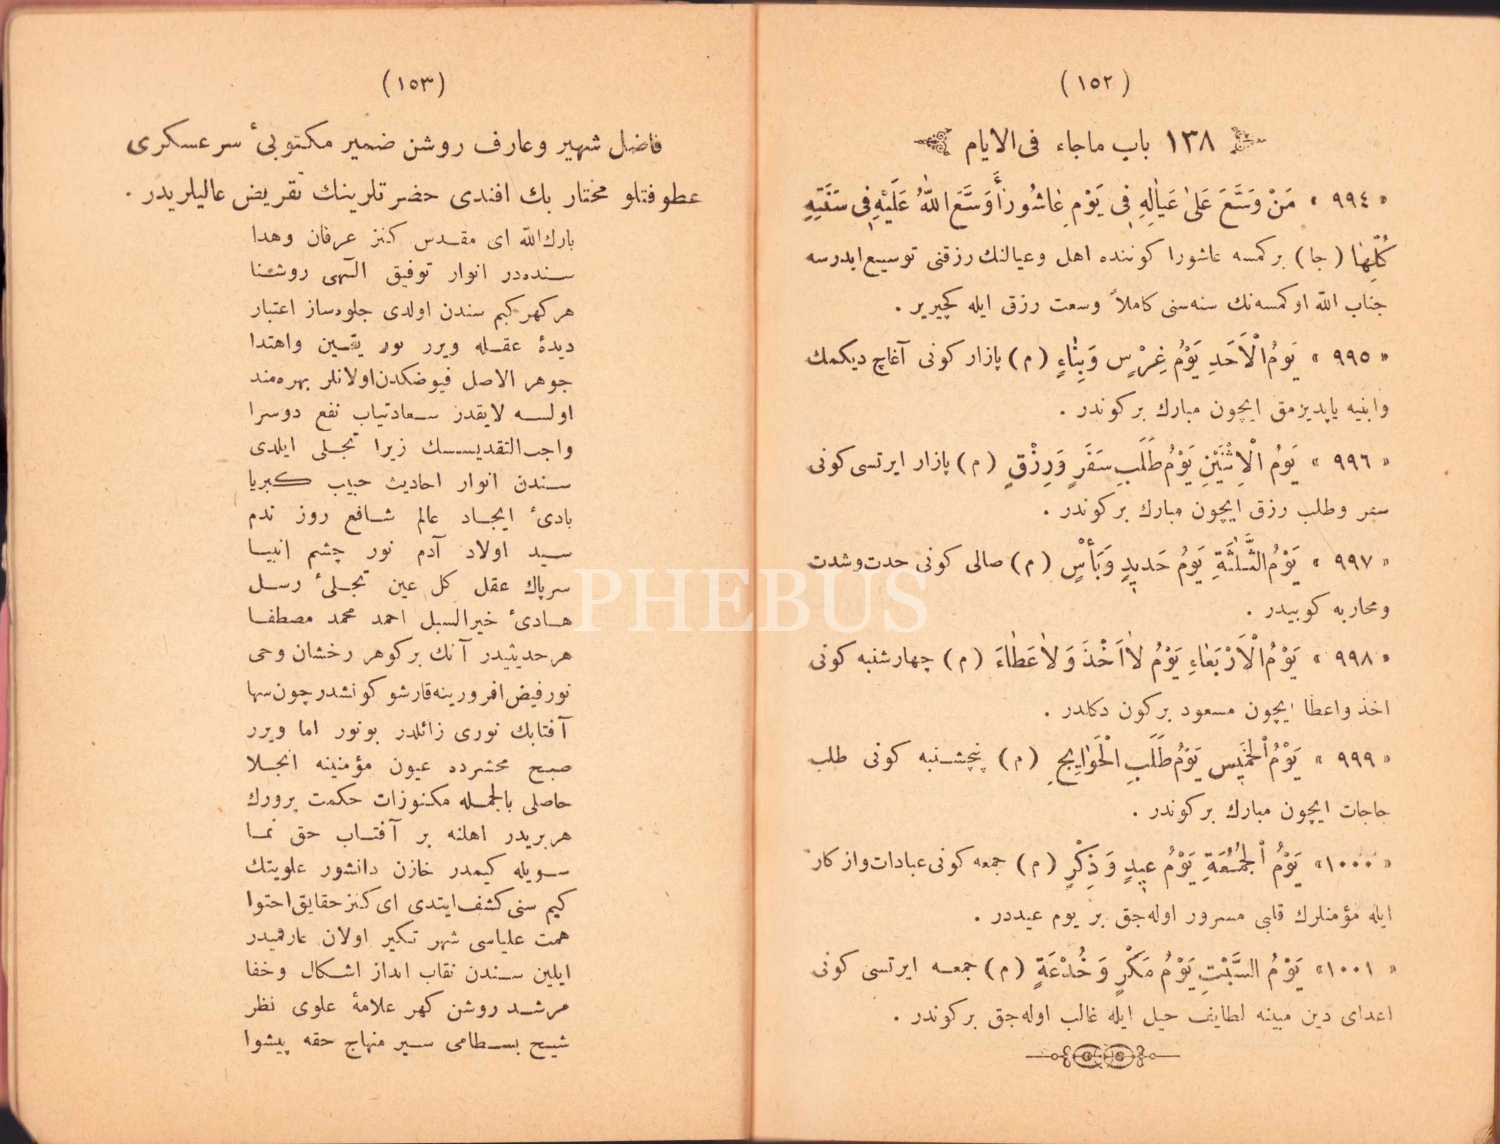 (١٥٢)
١٣٨ باب ماجاء فی الایام
« ٩٩٤ » مَنْ وَسَّعَ عَلىٰ عَيٰالِهِ فِی يَوْمِ عٰاشُورٰأَ وَسَّعَ اللّٰهُ عَلَيْهِ فِی سَنَتِهِ
كُلِّهٰا (جا) بر كمسه عاشورا كوننده اهل وعیالنك رزقنی توسیع ایدرسه
جناب الله او كمسه‌نك سنه‌سنی كاملاً وسعت رزق ایله كچیریر .
« ٩٩٥ » يَوْمُ الْاَحَدِ يَوْمُ غِرْسٍ وَبِنٰاءٍ (م) پازار كونی آغاچ دیكمك
وابنیه یاپدیرمق ایچون مبارك بركوندر .
« ٩٩٦ » يَوْمُ الْاِثْنَيْنِ يَوْمُ طَلَبِ سَفَرٍ وَرِزْقٍ (م) پازار ایرتسی كونی
سفر وطلب رزق ایچون مبارك بركوندر .
« ٩٩٧ » يَوْمُ الثَّلٰثَةِ يَوْمُ حَدِيدٍ وَبَأْسٍ (م) صالی كونی حدت وشدت
ومحاربه كونیدر .
« ٩٩٨ » يَوْمُ الْاَرْبَعٰاءِ يَوْمُ لٰا اَخْذَ وَلٰا عَطٰاءَ (م) چهارشنبه كونی
اخذ واعطا ایچون مسعود بركون دكلدر .
« ٩٩٩ » يَوْمُ الْخَمِيسِ يَوْمُ طَلَبِ الْحَوٰايِجِ (م) پنچشنبه كونی طلب
حاجات ایچون مبارك بركوندر .
« ١٠٠٠ » يَوْمُ الْجُمُعَةِ يَوْمُ عِيدٍ وَذِكْرٍ (م) جمعه كونی عبادات واذكار
ایله مؤمنلرك قلبی مسرور اوله‌جق بر یوم عیددر .
« ١٠٠١ » يَوْمُ السَّبْتِ يَوْمُ مَكْرٍ وَخُدْعَةٍ (م) جمعه ایرتسی كونی
اعدای دین مبینه لطایف حیل ایله غالب اوله‌جق بركوندر .
(١٥٣)
فاضل شهیر وعارف روشن ضمیر مكتوبیٔ سرعسكری
عطوفتلو مختار بك افندی حضرتلرینك تقریض عالیلریدر .
بارك‌الله ای مقدس كنز عرفان وهدا
سنده‌در انوار توفیق الٓهی روشنا
هر كهركیم سندن اولدی جلوه‌ساز اعتبار
دیدهٔ عقله ویرر نور یقین واهتدا
جوهر الاصل فیوضكدن اولانلر بهره‌مند
اولسه لایقدر سعادتیاب نفع دوسرا
واجب‌التقدیسسك زیرا تجلی ایلدی
سندن انوار احادیث حبیب كبریا
بادیٔ ایجاد عالم شافع روز ندم
سید اولاد آدم نور چشم انبیا
سرپاك عقل كل عین تجلیٔ رسل
هادیٔ خیرالسبل احمد محمد مصطفا
هرحدیثیدر آنك بركوهر رخشان وحی
نور فیض افروزینه قارشو كونشدر چون سها
آفتابك نوری زائلدر بونور اما ویرر
صبح محشرده عیون مؤمنینه انجلا
حاصلی بالجمله مكنوزات حكمت پرورك
هر بریدر اهلنه بر آفتاب حق نما
سویله كیمدر خازن دانشور علویتك
كیم سنی كشف ایتدی ای كنز حقایق احتوا
همت علیاسی شهر تكیر اولان عارفمیدر
ایلین سندن نقاب انداز اشكال وخفا
مرشد روشن كهر علامهٔ علوی نظر
شیخ بسطامی سیر منهاج حقه پیشوا
PHEBUS